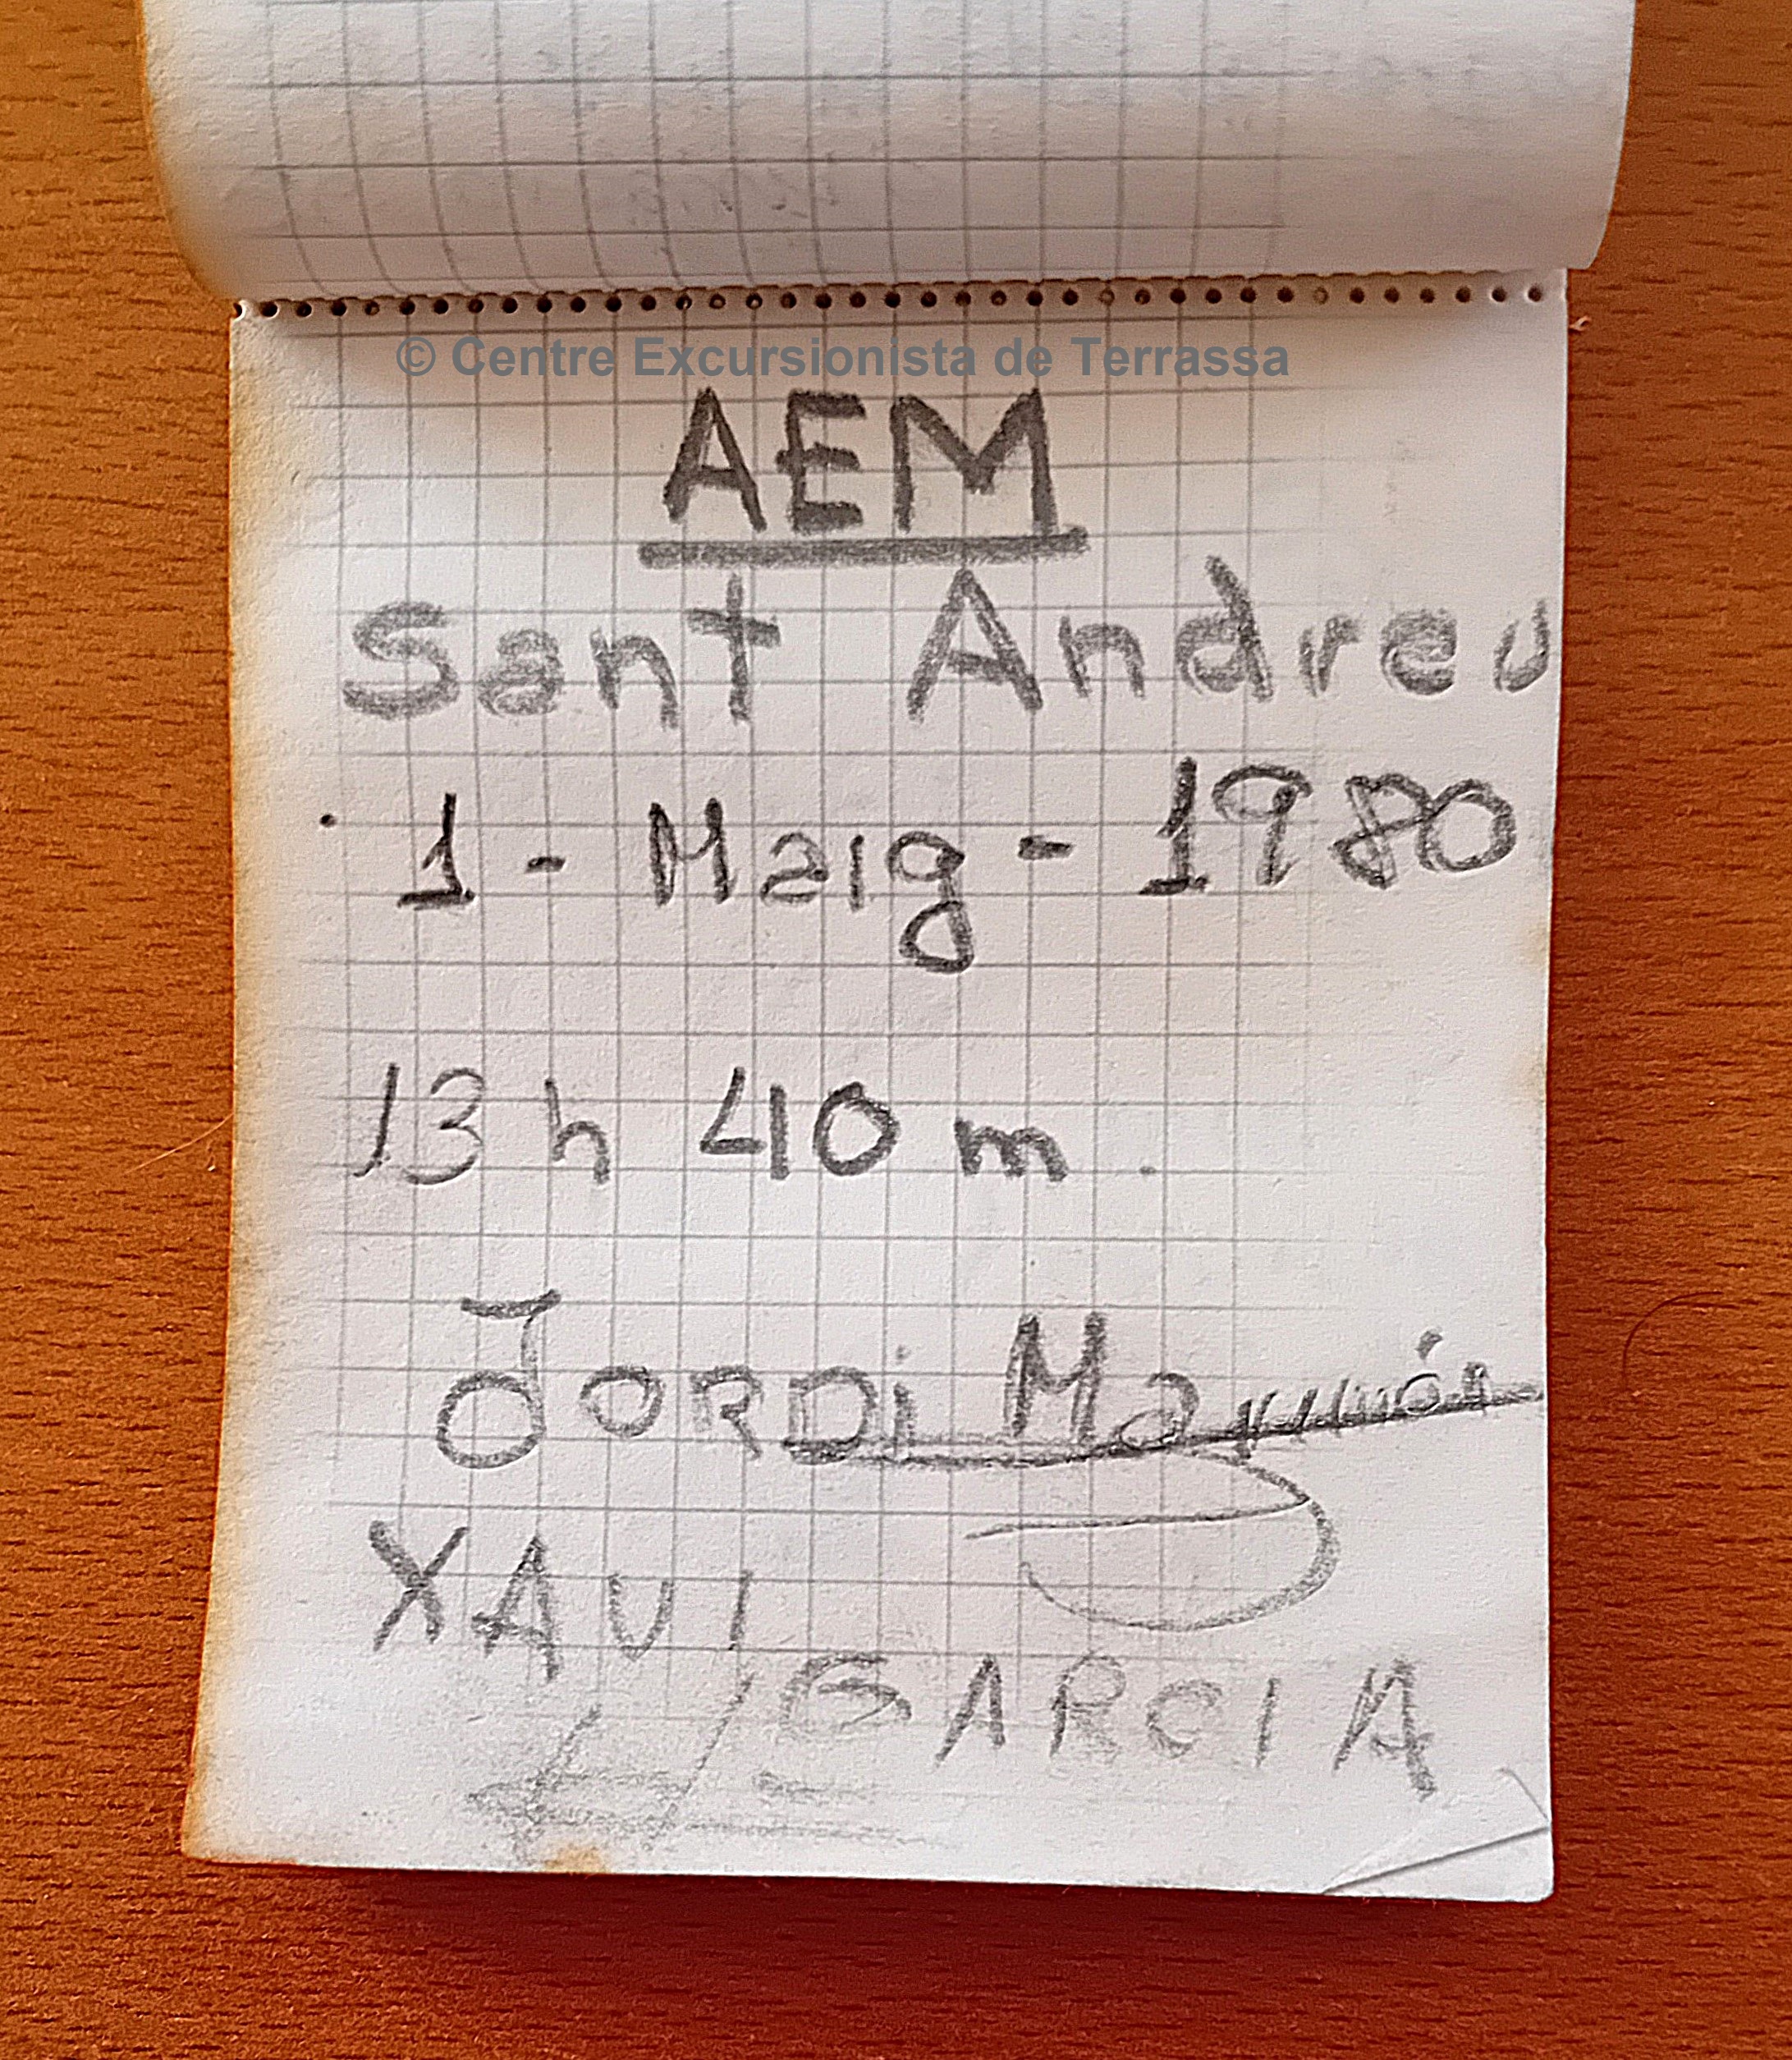 © Centre Excursionista de Terrassa
AEM
Sant Andreu
1 - Maig - 1980
13 h 40 m.
JORDi
XAVI
GARCIA